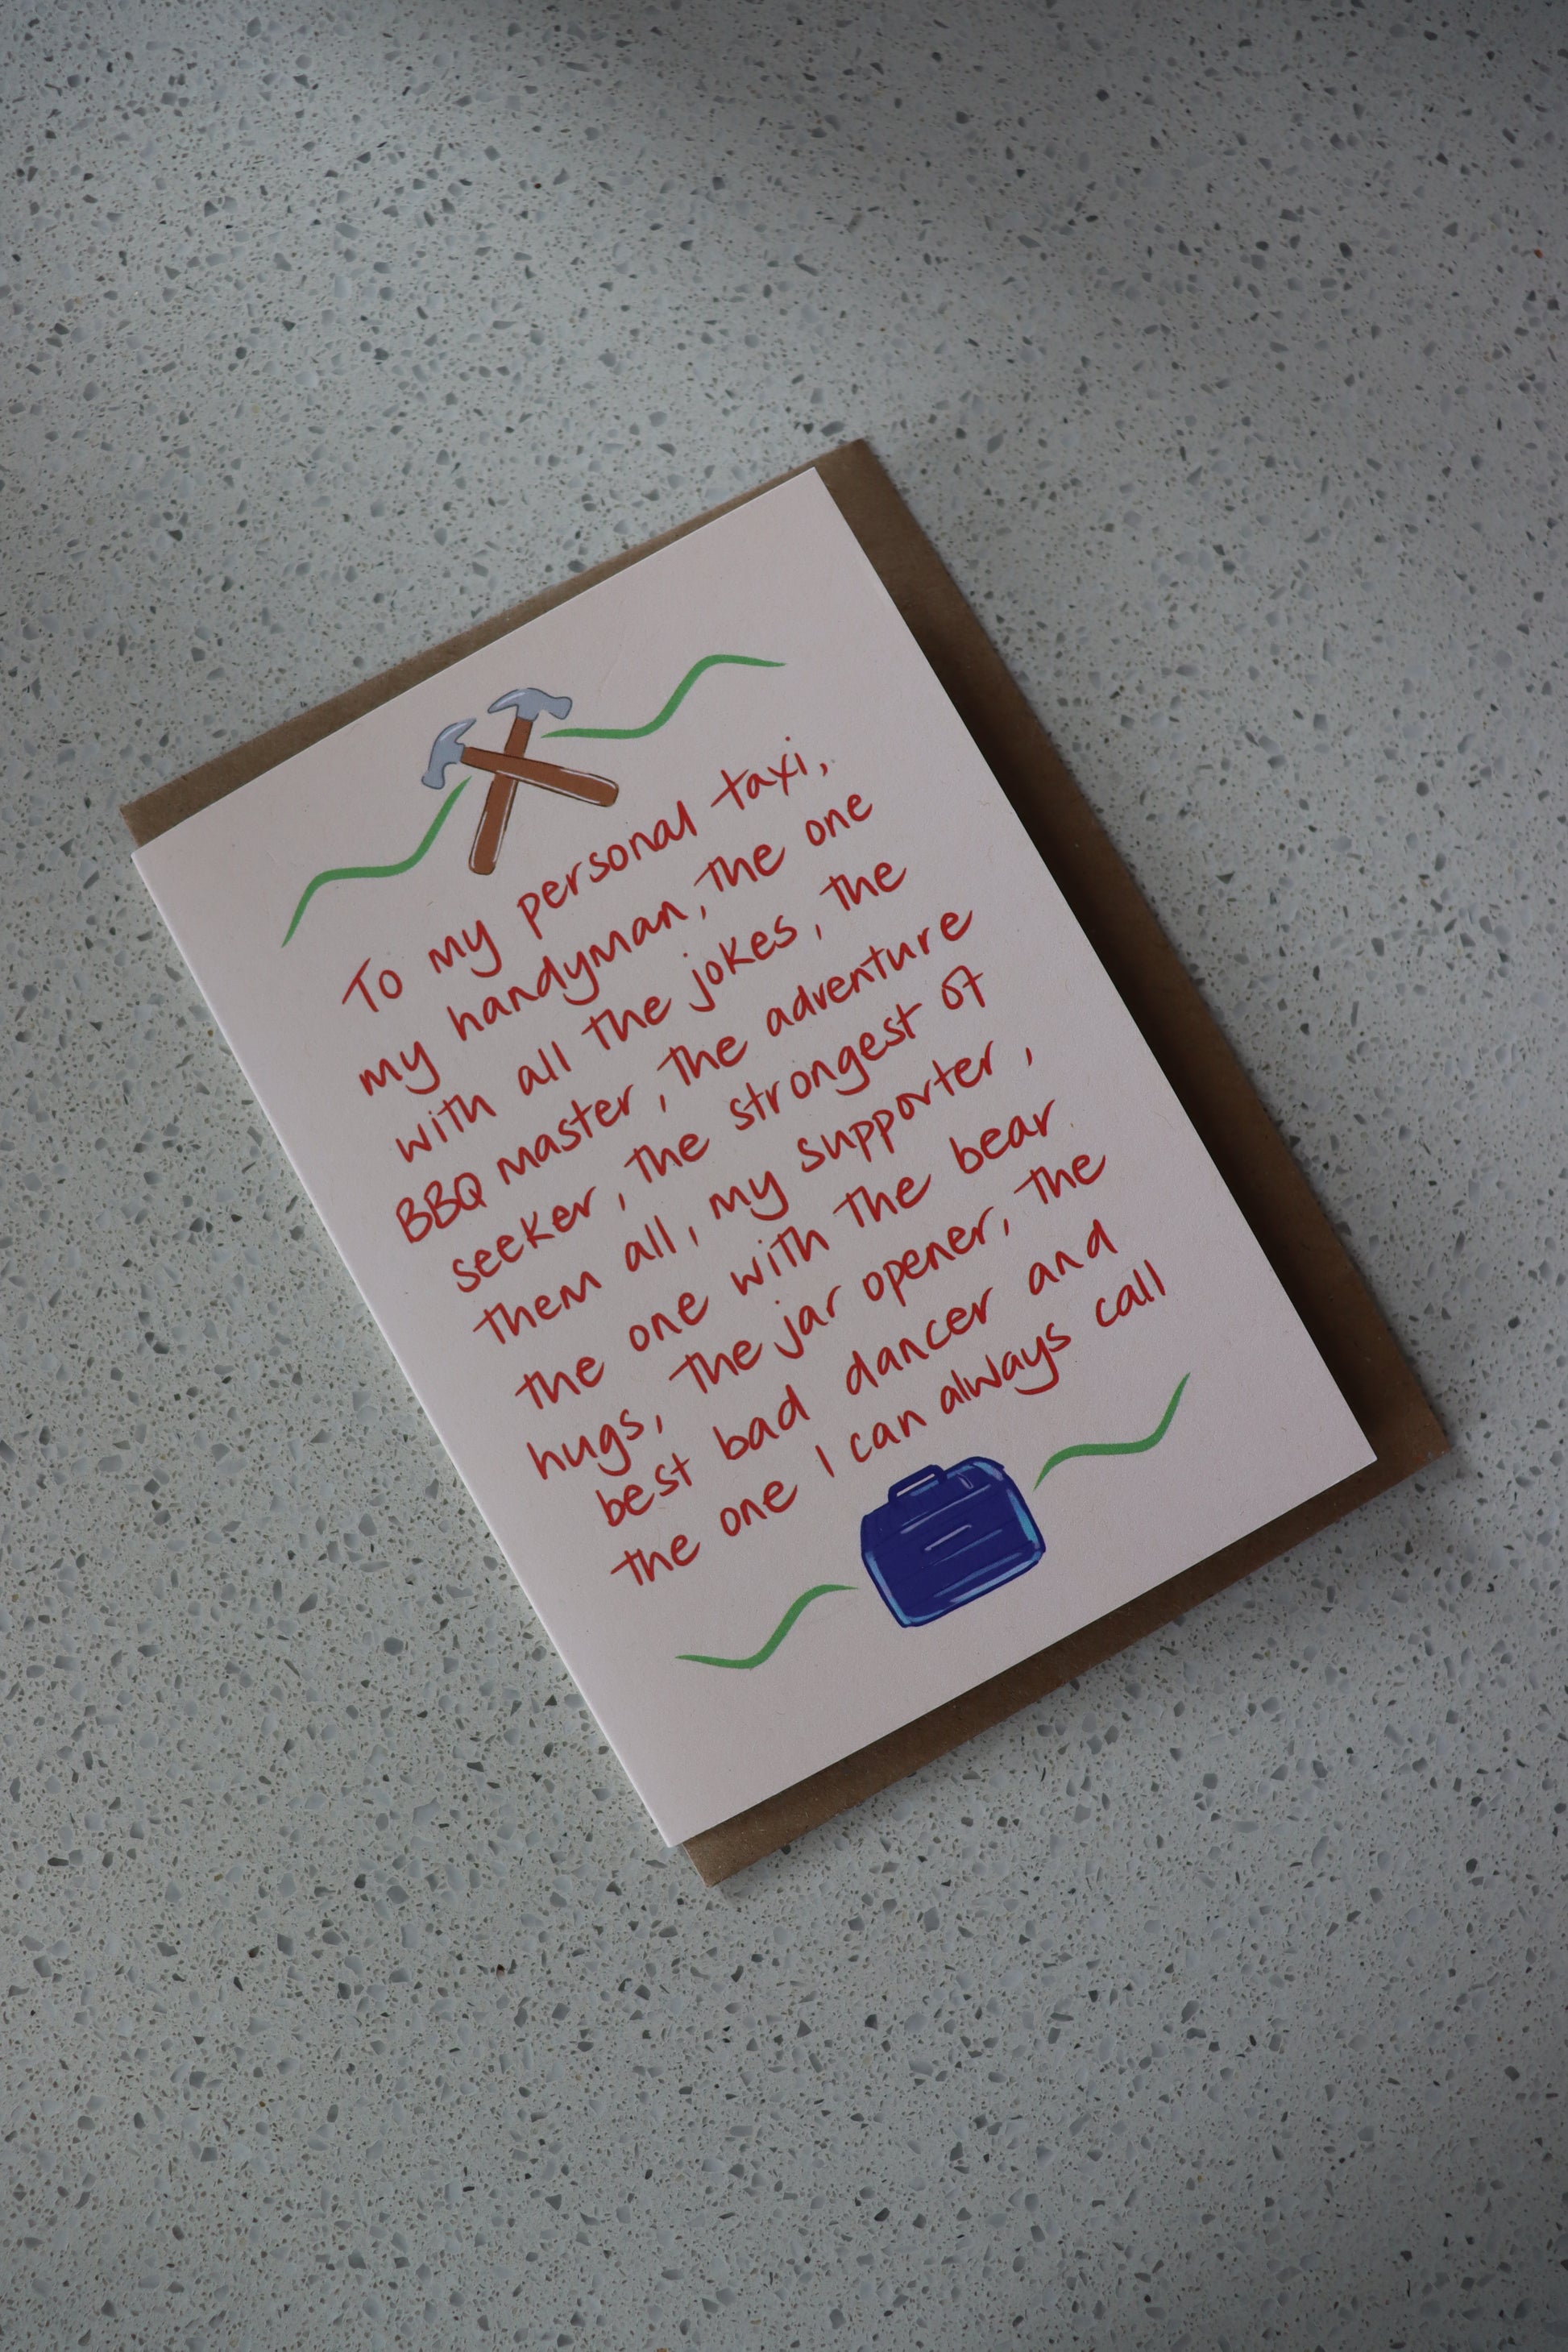 To my personal taxi,
my handyman, the one
with all the jokes, the
BBQ master, the adventure
seeker, the strongest of
them all, my supporter,
the one with the bear
hugs, the jar opener, the
best bad dancer and
the one I can always call